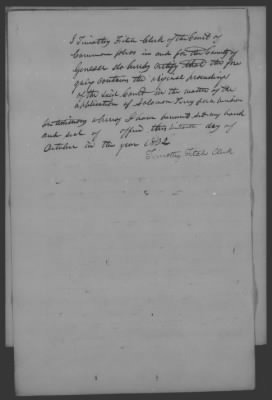 I Timothy Fitch Clerk of the Court of
Common pleas in and for the County of
Genesee do hereby certify that the fore
going contains the original proceedings
of the said Court in the matter of the
application of Solomon Terry for a pension
In testimony whereof I have hereunto set my hand
and seal of office this day of
October in the year 1832
Timothy Fitch Clerk